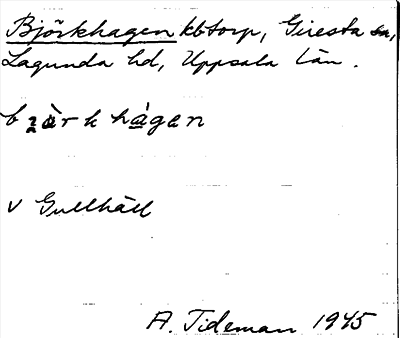 Björkhagen kbtorp, Giresta sn,
Lagunda hd, Uppsala län.
hàgen
v Gullhäll
A. Tideman 1945